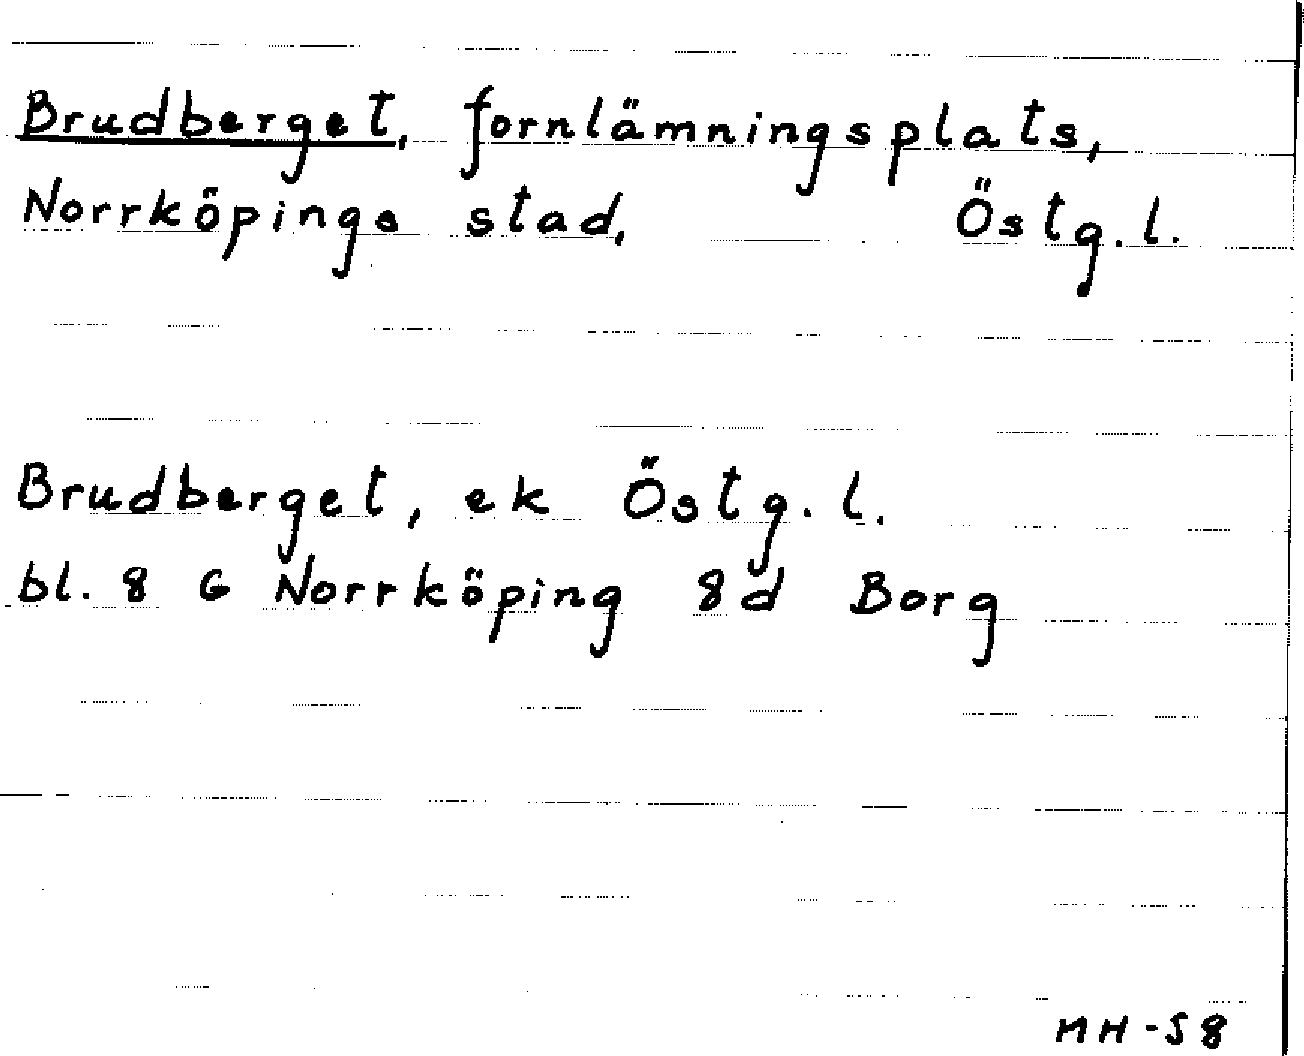 Brudberget, fornlämningsplats,
Norrköpings stad, Östg.l.
Brudberget, ek Östg.l.
bl. 8 G Norrköping 8d Borg
MH-58